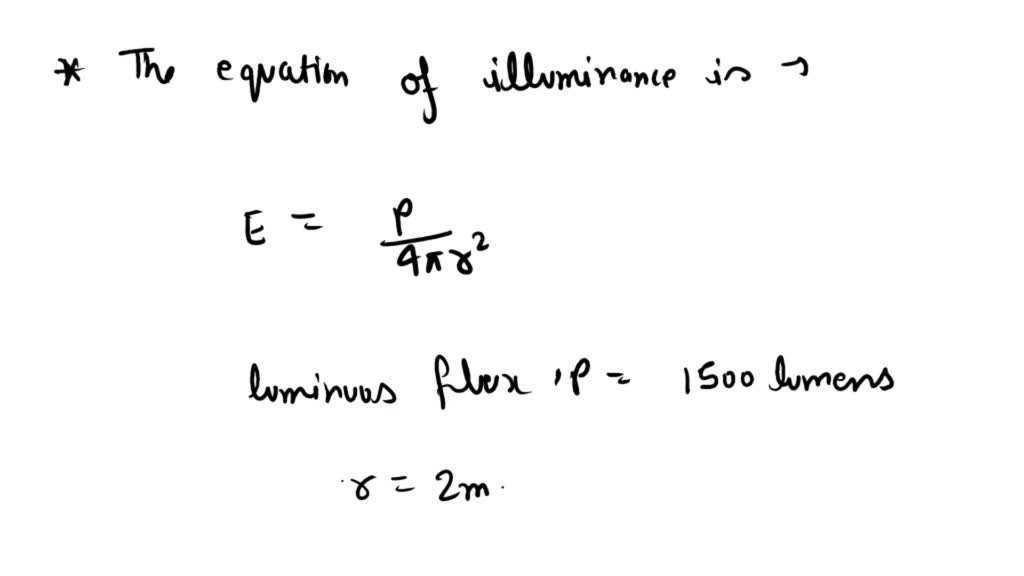 * The equation of illuminance is →
E = P / 4πr²
luminuos flux, P = 1500 lumens
r = 2m.